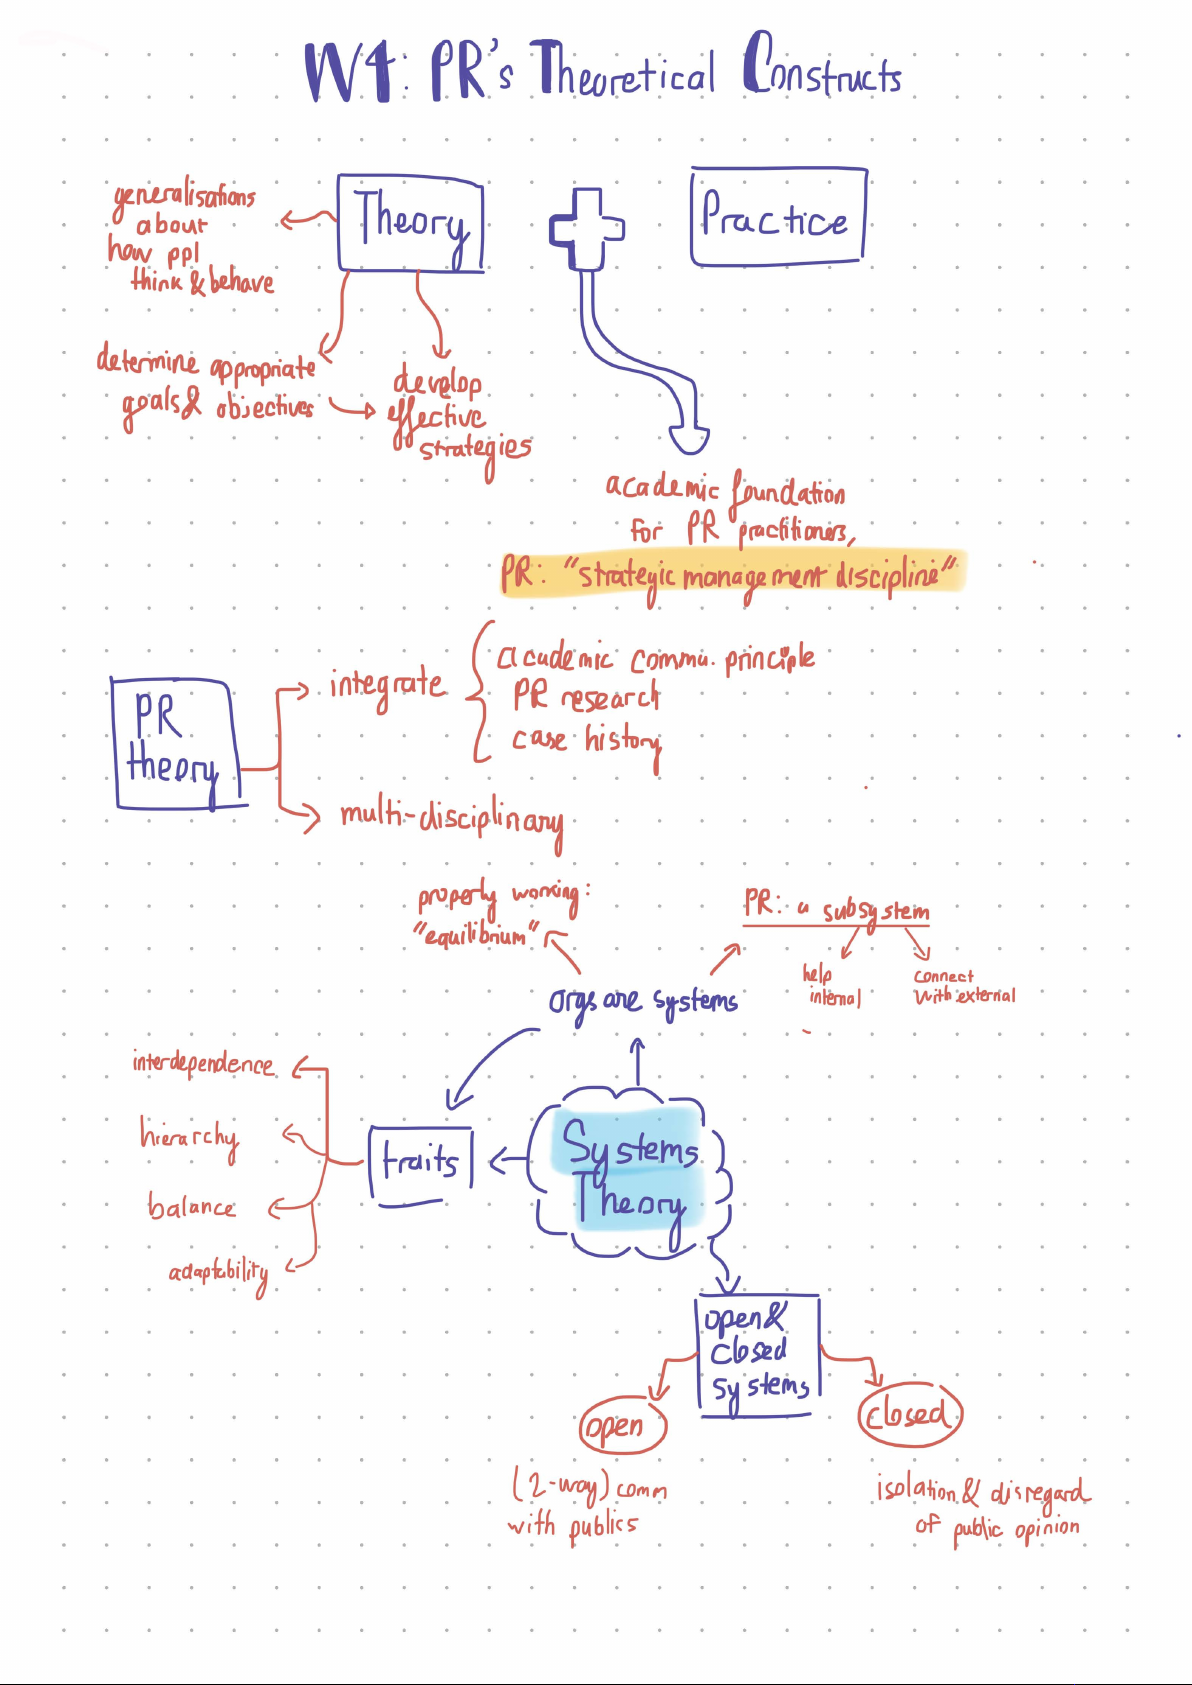 W4: PR's Theoretical Constructs
Theory
Practice
generalisations
about
how ppl
think & behave
determine appropriate
goals & objectives
develop
effective
strategies
academic foundation
for PR practitioners,
PR: "strategic management discipline"
PR
theory
integrate
academic commu. principle
PR research
case history
multi-disciplinary
properly working:
"equilibrium"
PR: a subsystem
help
internal
connect
with external
orgs are systems
interdependence
hierarchy
balance
adaptability
traits
Systems
Theory
open &
closed
systems
open
closed
(2-way) comm
with publics
isolation & disregard
of public opinion